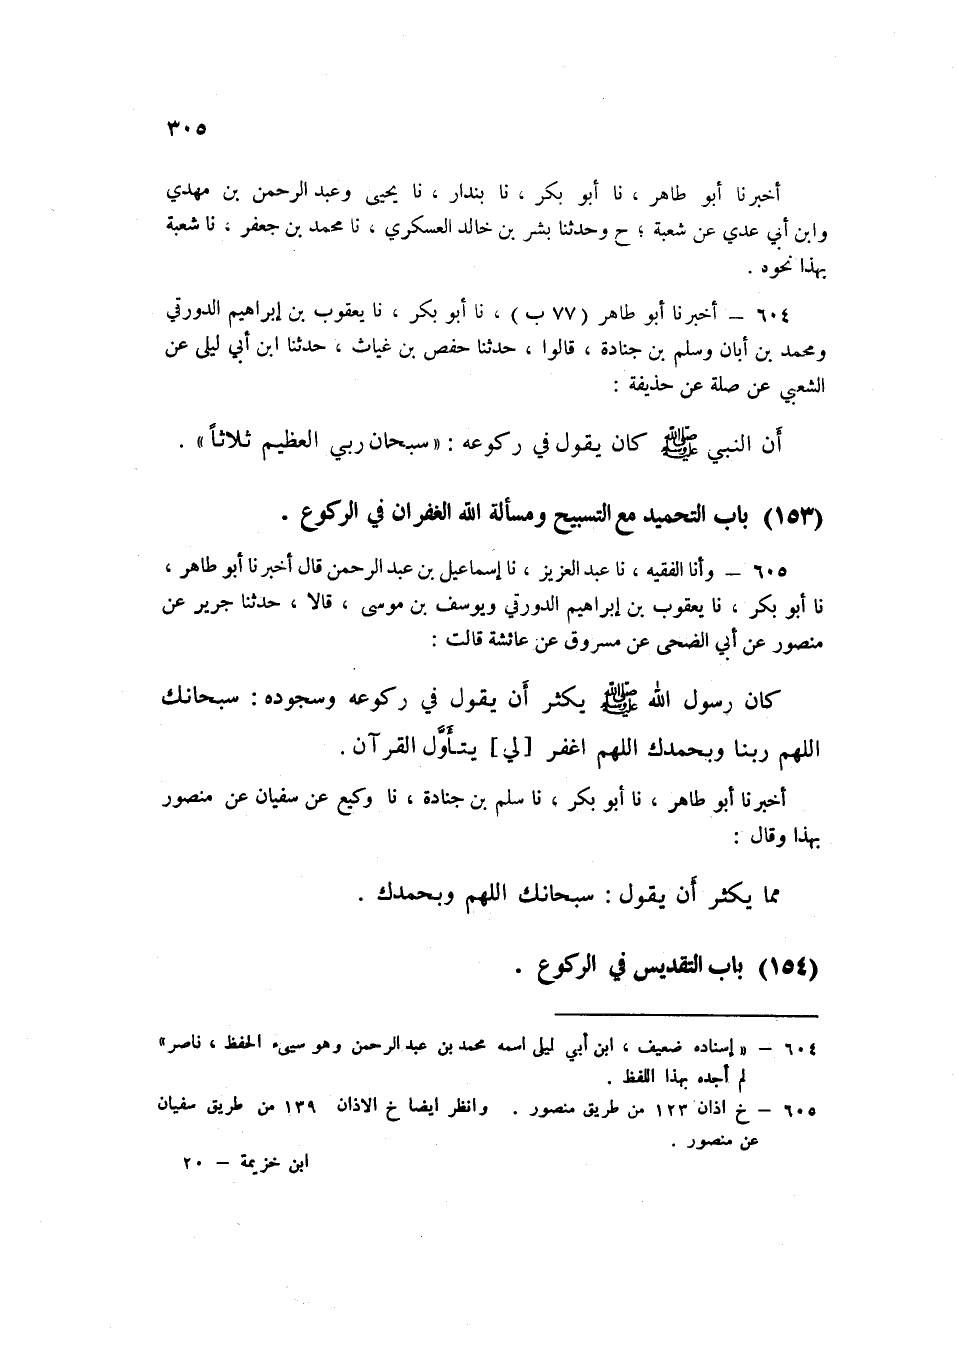 ٣٠٥
أخبرنا أبو طاهر ، نا أبو بكر ، نا بندار ، نا يحيى وعبد الرحمن بن مهدي
وابن أبي عدي عن شعبة ؛ ح وحدثنا بشر بن خالد العسكري ، نا محمد بن جعفر ، نا شعبة
بهذا نحوه .
٦٠٤ – أخبرنا أبو طاهر (٧٧ ب) ، نا أبو بكر ، نا يعقوب بن إبراهيم الدورقي
ومحمد بن أبان وسلم بن جنادة ، قالوا ، حدثنا حفص بن غياث ، حدثنا ابن أبي ليلى عن
الشعبي عن صلة عن حذيفة :
أن النبي ﷺ كان يقول في ركوعه : «سبحان ربي العظيم ثلاثاً» .
(١٥٣) باب التحميد مع التسبيح ومسألة الله الغفران في الركوع .
٦٠٥ – وأنا الفقيه ، نا عبد العزيز ، نا إسماعيل بن عبد الرحمن قال أخبرنا أبو طاهر ،
نا أبو بكر ، نا يعقوب بن إبراهيم الدورقي ويوسف بن موسى ، قالا ، حدثنا جرير عن
منصور عن أبي الضحى عن مسروق عن عائشة قالت :
كان رسول الله ﷺ يكثر أن يقول في ركوعه وسجوده : سبحانك
اللهم ربنا وبحمدك اللهم اغفر [لي] يتأوَّل القرآن .
أخبرنا أبو طاهر ، نا أبو بكر ، نا سلم بن جنادة ، نا وكيع عن سفيان عن منصور
بهذا وقال :
مما يكثر أن يقول : سبحانك اللهم وبحمدك .
(١٥٤) باب التقديس في الركوع .
٦٠٤ – «إسناده ضعيف ، ابن أبي ليلى اسمه محمد بن عبد الرحمن وهو سيىء الحفظ ، ناصر»
لم أجده بهذا اللفظ .
٦٠٥ – خ اذان ١٢٣ من طريق منصور . وانظر ايضا خ الاذان ١٣٩ من طريق سفيان
عن منصور .
ابن خزيمة – ٢٠